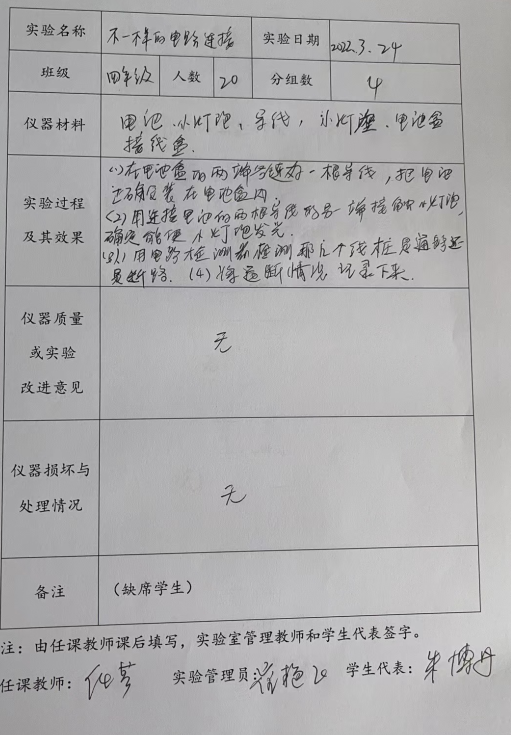 实验名称 不一样的电路连接 实验日期 2022.3.24
班级 四年级 人数 20 分组数 4
仪器材料 电池、小灯泡、导线,小灯座、电池盒
接线盒
实验过程
及其效果
(1)在电池盒的两端分别连好一根导线,把电池
正确安装在电池盒内。
(2)用连接电池的两根导线的另一端接触小灯泡,
确定能使小灯泡发光。
(3)用电路检测器检测那几个线桩是通路还
是断路.(4)将通断情况记录下来.
仪器质量
或实验
改进意见
无
仪器损坏与
处理情况
无
备注 (缺席学生)
注:由任课教师课后填写,实验室管理教师和学生代表签字。
任课教师: 实验管理员: 学生代表:朱博丹